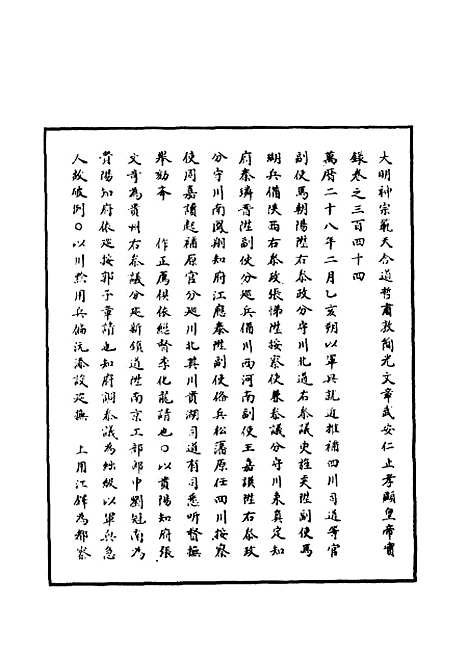 大明神宗範天合道哲肅敦簡光文章武安仁止孝顯皇帝實
錄卷之三百四十四
萬曆二十八年二月乙亥朔以軍興就近推補四川司道等官
副使馬朝陽陞右叅政分守川北道右叅議史旌賢陞副使馬
湖兵備陝西右叅政張悌陞按察使兼叅議分守川東真定知
府秦 晉陞副使分巡兵備川西河南副使王嘉謨陞右叅政
分守川南閬 知府江應泰陞副使備兵松藩原任四川按察
使周嘉謨起補原官分巡川北其川貴湖司道有司悉聽督撫
舉劾奔 作正薦俱依總督李化龍請也〇以貴陽知府張
文奇為貴州右叅議分巡新鎮道陞南京工部郎中劉冠南為
貴陽知府依巡按郭子章請也知府 叅議為 級以軍興急
人故破例〇以川黔用兵偏沅添設巡撫 上用江鐸為都察